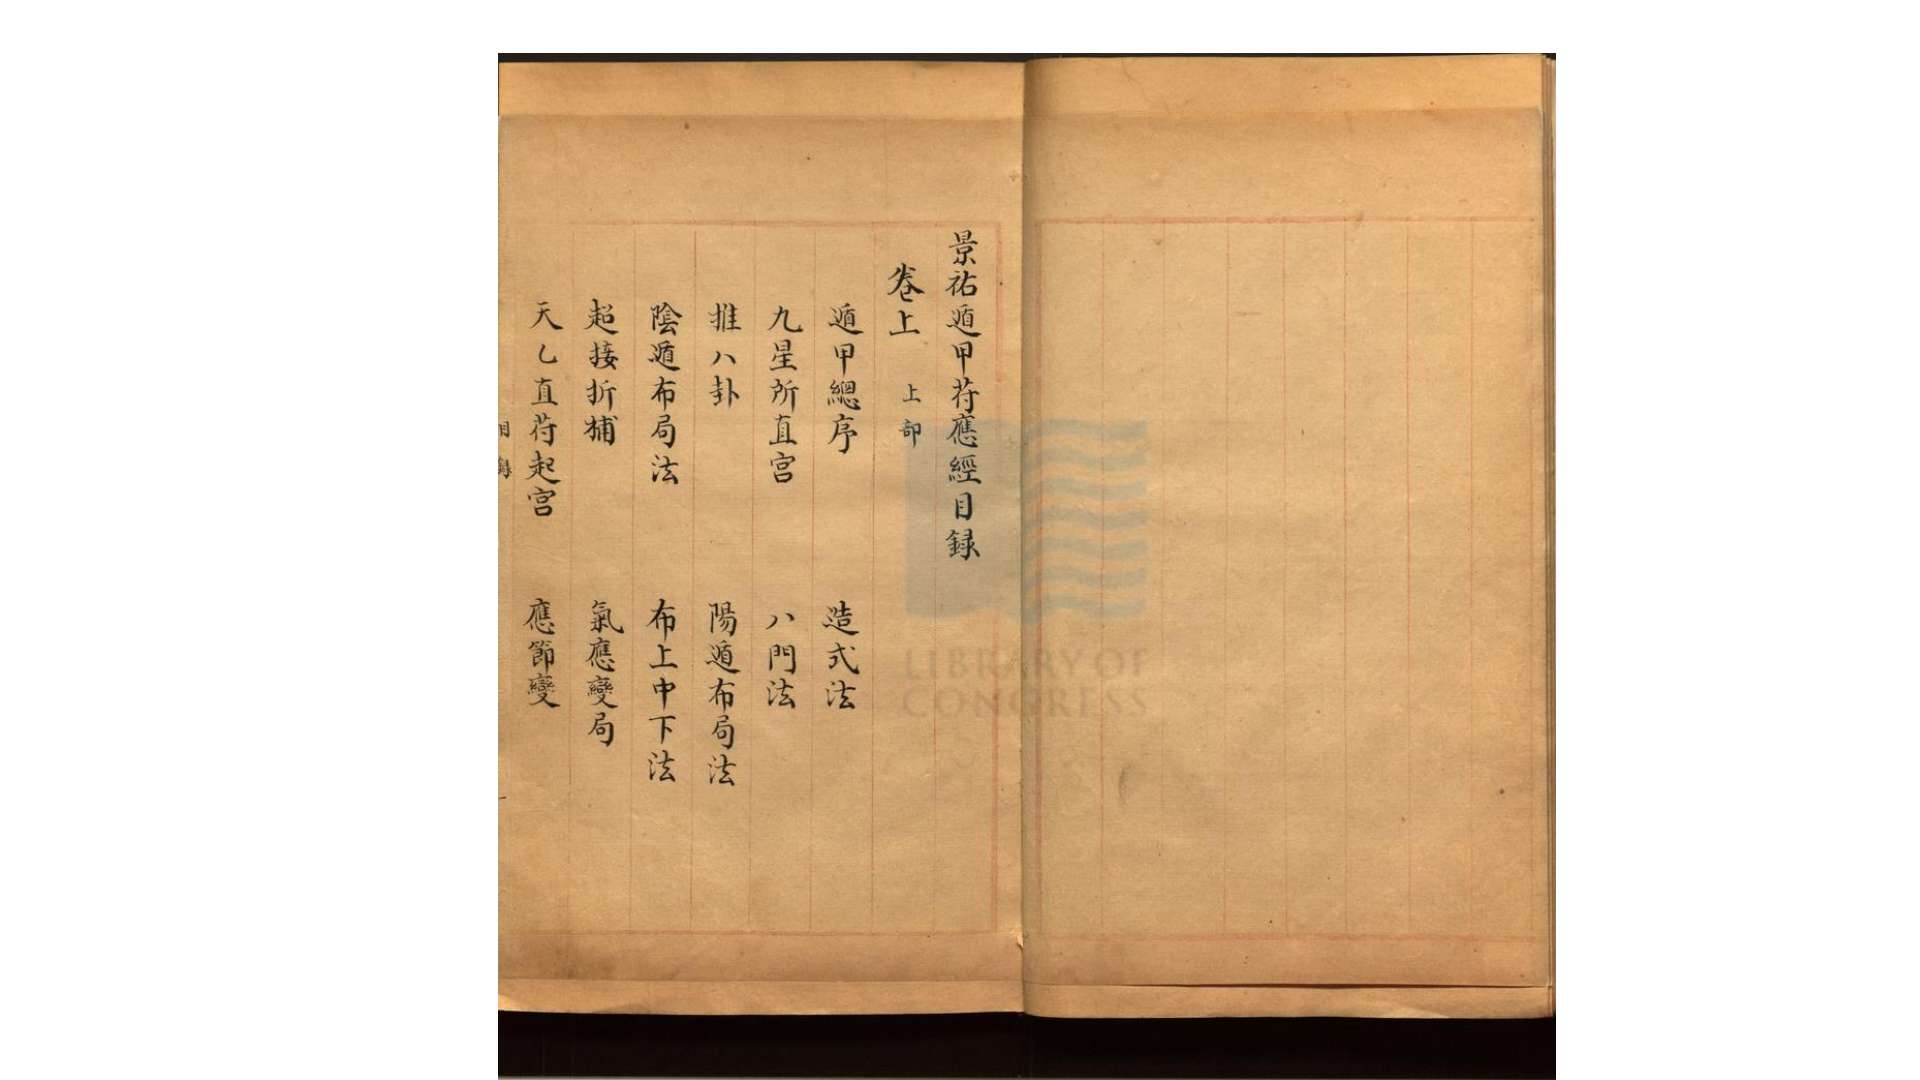 景祐遁甲苻應經目録
卷上 上部
遁甲總序 造式法
九星所直宫 八門法
推八卦 陽遁布局法
陰遁布局法 布上中下法
超接折捕 氣應變局
天乙直苻起宫 應節變
目録
LIBRARY OF
CONGRESS